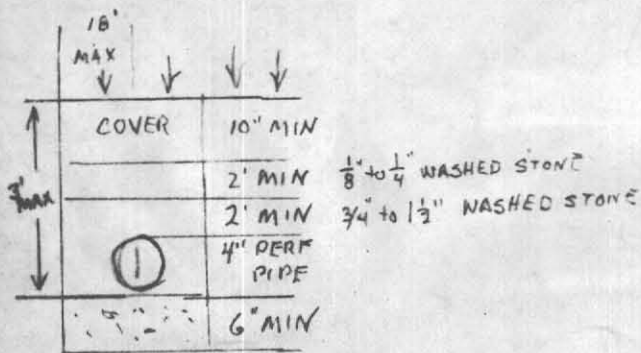 18'
MAX
COVER 10" MIN
2' MIN 1/8" to 1/4" WASHED STONE
2' MIN 3/4" to 1 1/2" WASHED STONE
3' MAX
4" PERF
PIPE
6" MIN